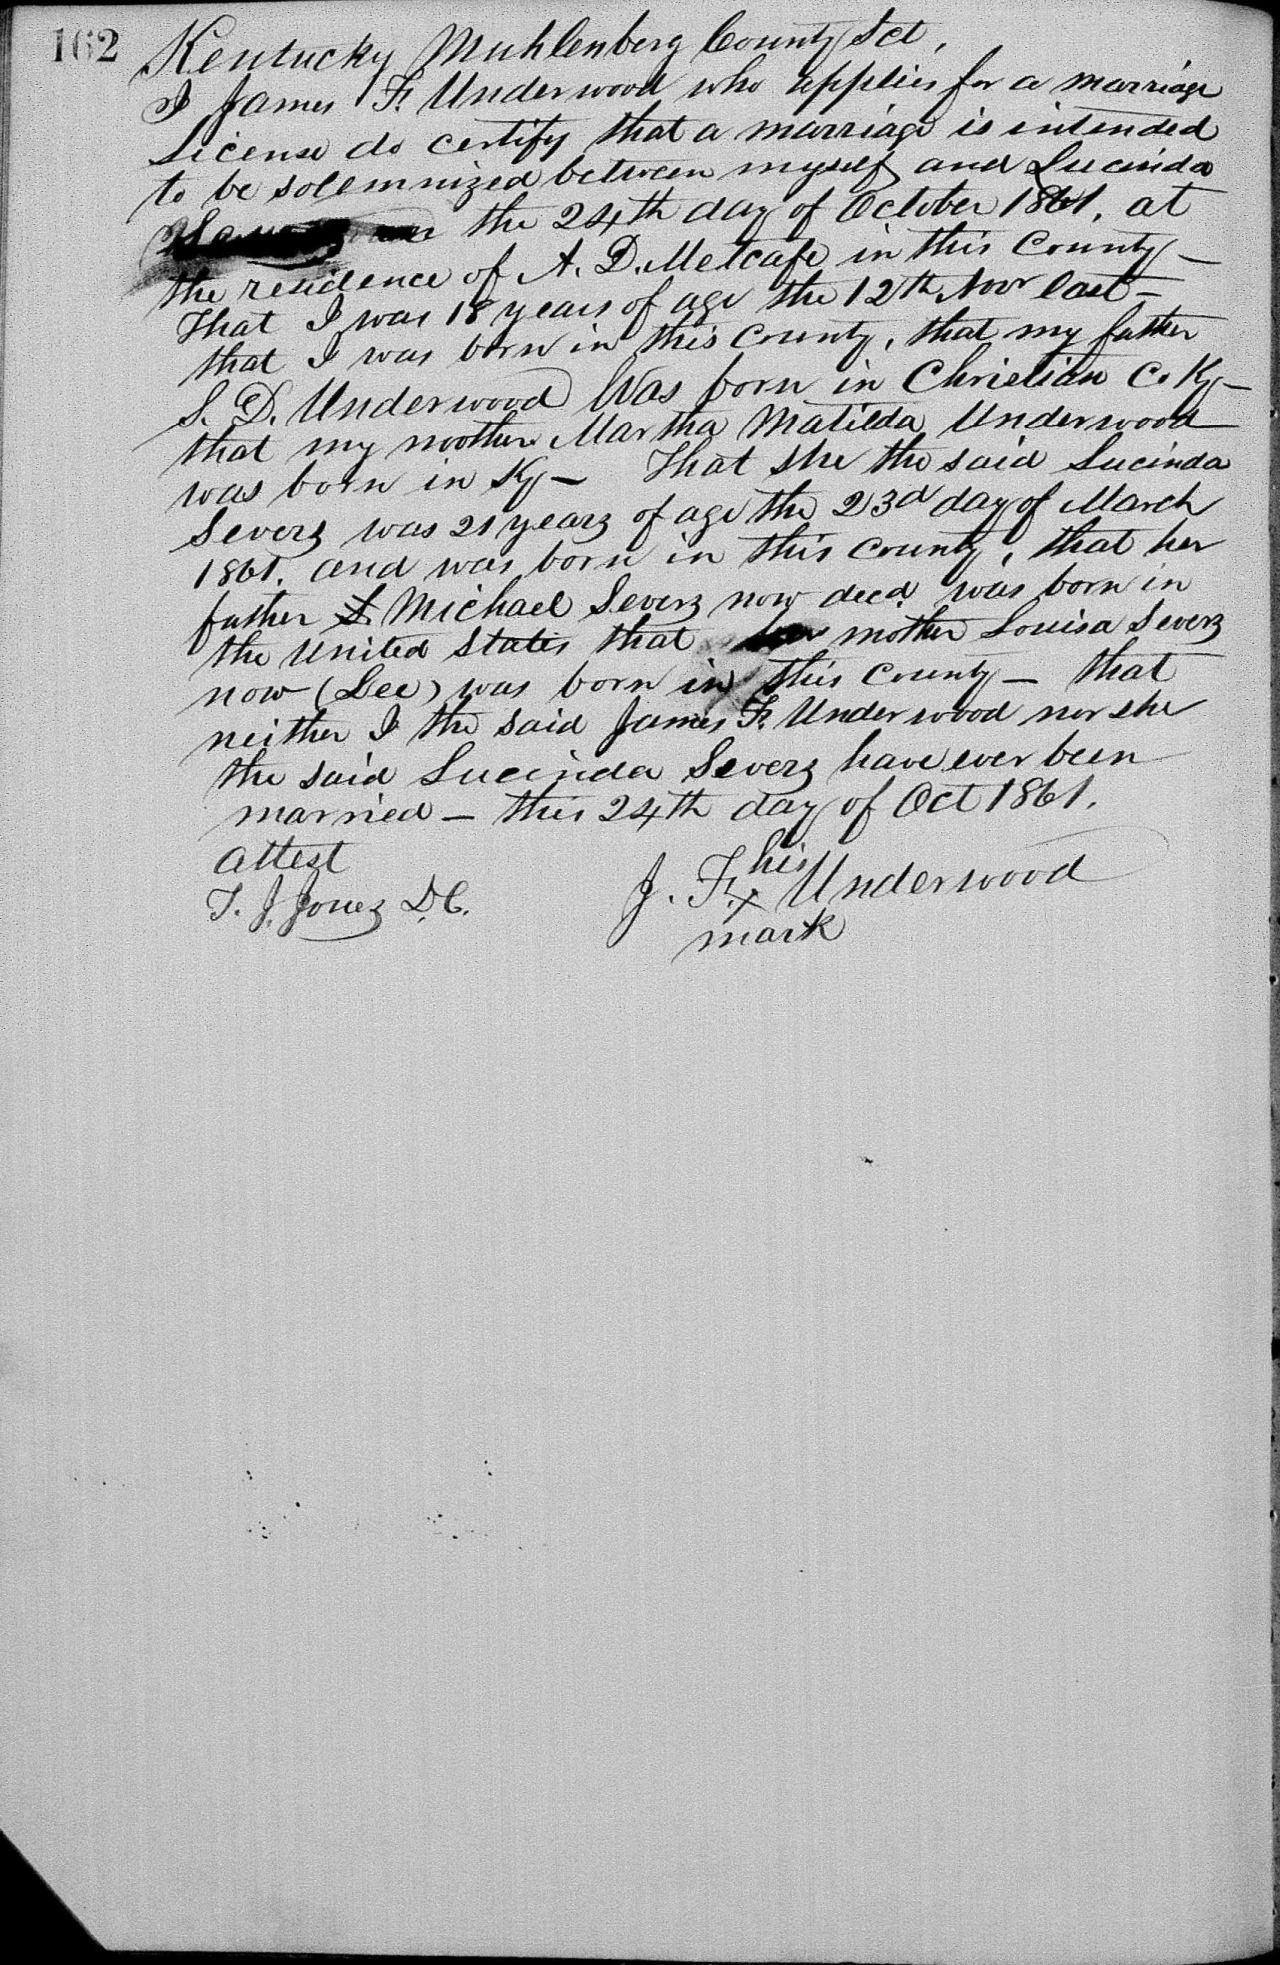 162
Kentucky Muhlenberg County Sct,
I James F. Underwood who applies for a marriage
License do certify that a marriage is intended
to be solemnized between myself and Lucinda
the 24th day of October 1861, at
the residence of A. D. Metcafe in this County —
That I was 18 years of age the 12th Nov last —
that I was born in this County, that my father
S. D. Underwood Was born in Christian Co Ky —
that my moother Martha Matilda Underwood
was born in Ky — That she the said Lucinda
Severs was 21 years of age the 23d day of March
1861. and was born in this county, that her
father Michael Severs now decd was born in
the United States that her mother Louisa Severs
now (Lee) was born in this County — that
neither I the said James F. Underwood nor she
the said Lucinda Severs have ever been
married — this 24th day of Oct 1861.
Attest
his
T. J. Jones D.C. J. F. x Underwood
mark